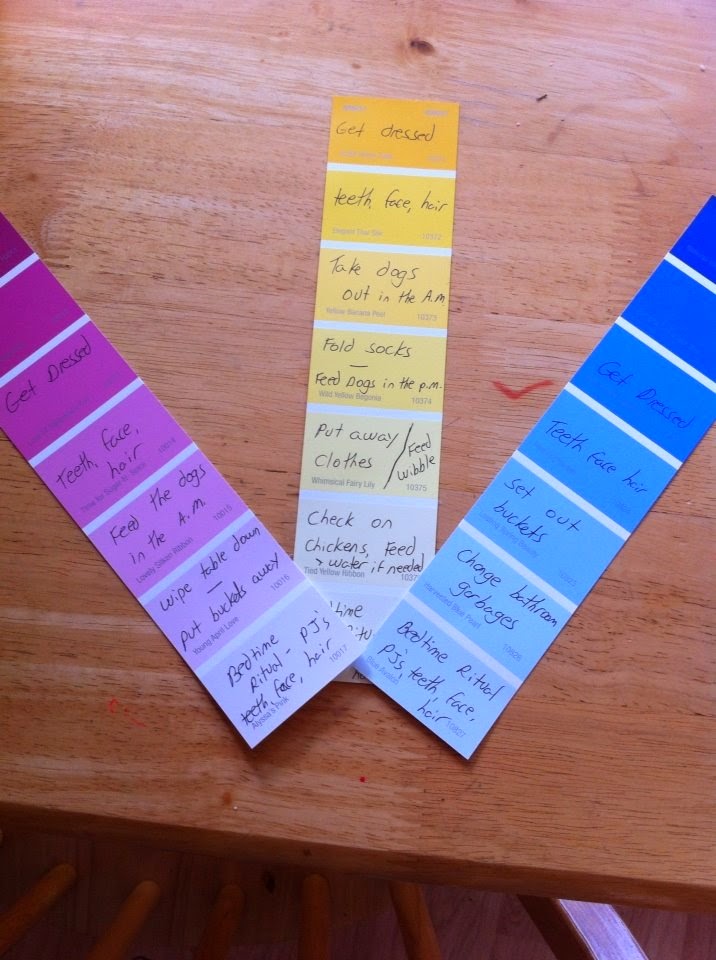 Get Dressed
Teeth, face,
hair
Time for Sugar N. Spice 10014
Feed the dogs
in the A.M.
Lovely Silken Ribbon 10015
wipe table down
—
put buckets away
Young April Love 10016
Bedtime
Ritual - PJ's
teeth, face, hair
Alyssa's Pink 10017
Get dressed
teeth, face, hair
Elegant Thai Silk 10372
Take dogs
out in the A.M.
Yellow Banana Peel 10373
Fold socks
—
Feed Dogs in the p.m.
Wild Yellow Begonia 10374
Put away / Feed
Clothes / wibble
Whimsical Fairy Lily 10375
Check on
Chickens, Feed
+ water if needed
Tied Yellow Ribbon
Get Dressed
Teeth face hair
set out
buckets
10825
Change bathroom
garbages
Harvested Blue Pearl 10826
Bedtime Ritual
PJ's, teeth, face,
hair
Blue Avalon 10827